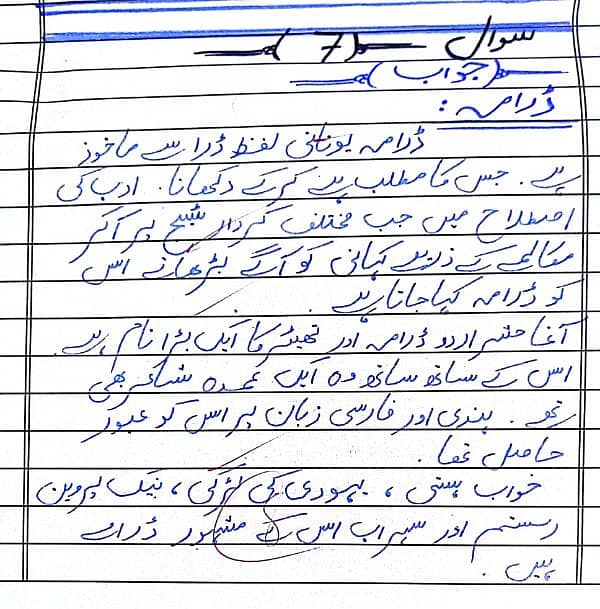 سوال (7)
(جواب)
ڈرامہ :
ڈرامہ یونانی لفظ ڈرا سے ماخوذ
ہے۔ جس کا مطلب ہے کر کے دکھانا۔ ادب کی
اصطلاح میں جب مختلف کردار سٹیج پر آکر
مکالمے کے ذریعے کہانی کو آگے بڑھاتے اس
کو ڈرامہ کہا جاتا ہے۔
آغا حشر اردو ڈرامہ اور تھیٹر کا ایک بڑا نام ہے۔
اس کے ساتھ ساتھ وہ ایک عمدہ شاعر بھی
تھے۔ ہندی اور فارسی زبان پر اس کو عبور
حاصل تھا۔
خواب ہستی ، یہودی کی لڑکی ، نیک پروین
رستم اور سہراب اس کے مشہور ڈرامے
ہیں۔